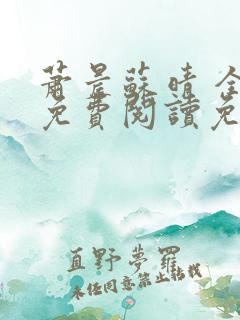 蕭景蘇晴全
免費閱讀免
直野夢羅
未经同意禁止转载